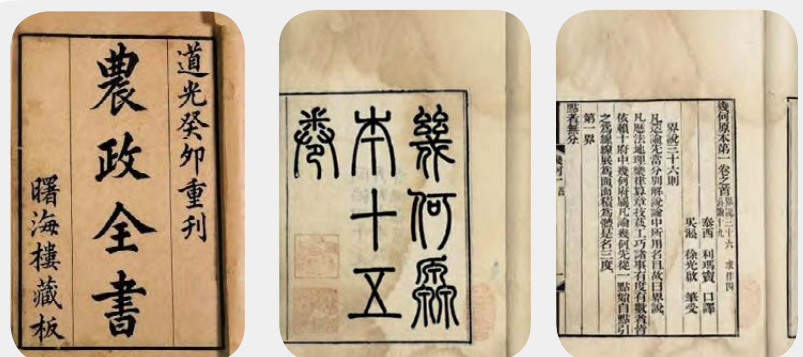 道光癸卯重刊
農政全書
曙海樓藏板
幾何原
本十五
卷
幾何原本第一卷之首 界說三十六 求作四
公論十九
泰西 利瑪竇 口譯
吳淞 徐光啟 筆受
界說三十六則
凡造論先當分別解說論中所用名目故曰界說
凡歷法地理樂律算章技藝工巧諸事有度有數者皆
依賴十府中幾何府屬凡論幾何先從一點始自點引
之爲線線展爲面面積爲體是名三度
第一界
點者無分